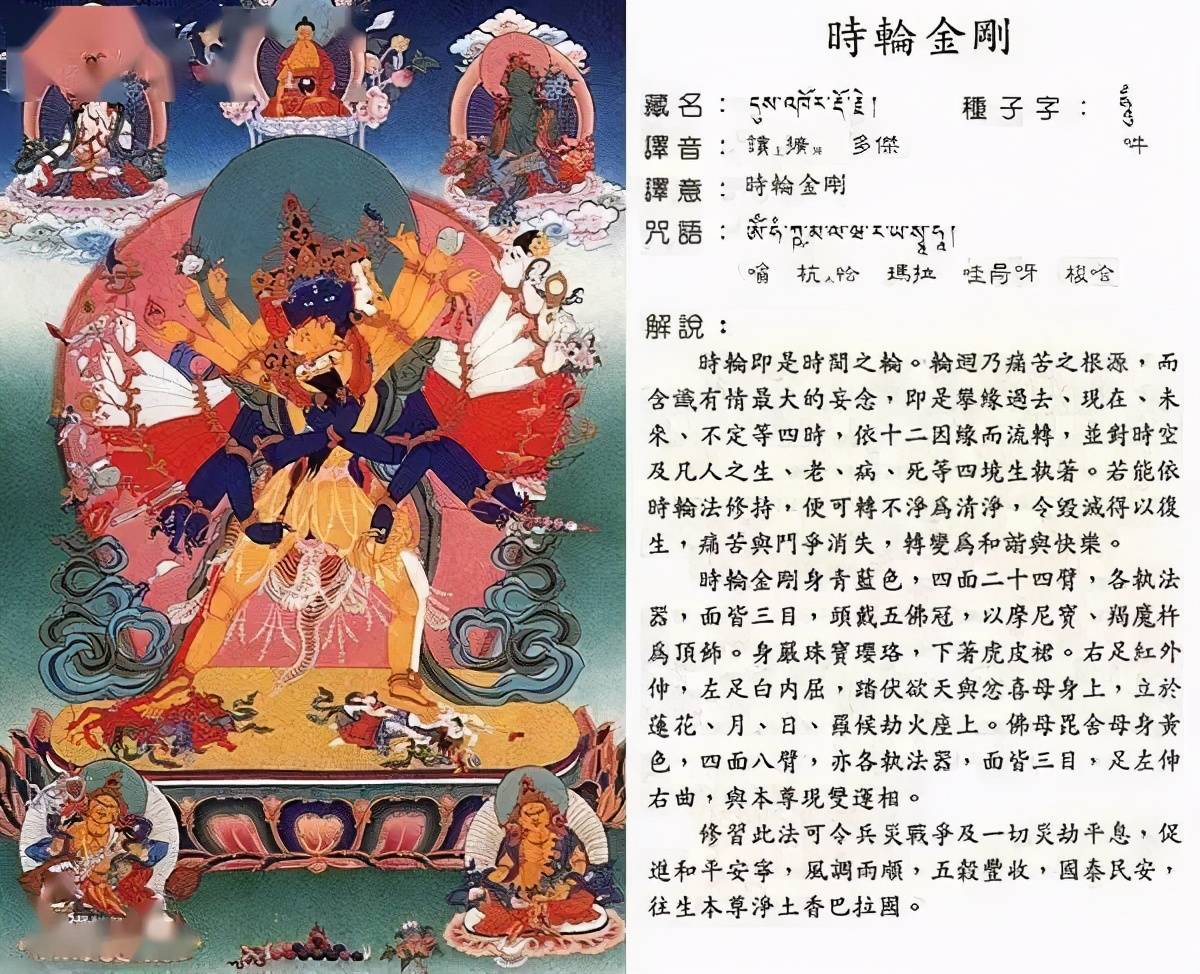 時輪金剛
藏名：དུས་འཁོར་རྡོ་རྗེ། 種子字：
譯音： 多傑 吽
譯意：時輪金剛
咒語：
杭 恰 瑪拉 梭哈
解說：
時輪即是時間之輪。輪迴乃痛苦之根源，而
含識有情最大的妄念，即是攀緣過去、現在、未
來、不定等四時，依十二因緣而流轉，並對時空
及凡人之生、老、病、死等四境生執著。若能依
時輪法修持，便可轉不淨為清淨，令毀滅得以復
生，痛苦與鬥爭消失，轉變為和諧與快樂。
時輪金剛身青藍色，四面二十四臂，各執法
器，面皆三目，頭戴五佛冠，以摩尼寶、羯魔杵
為頂飾。身嚴珠寶瓔珞，下著虎皮裙。右足紅外
伸，左足白內屈，踏伏欲天與忿喜母身上，立於
蓮花、月、日、羅候劫火座上。佛母毘舍母身黃
色，四面八臂，亦各執法器，面皆三目，足左伸
右曲，與本尊現雙運相。
修習此法可令兵災戰爭及一切災劫平息，促
進和平安寧，風調雨順，五穀豐收，國泰民安，
往生本尊淨土香巴拉國。